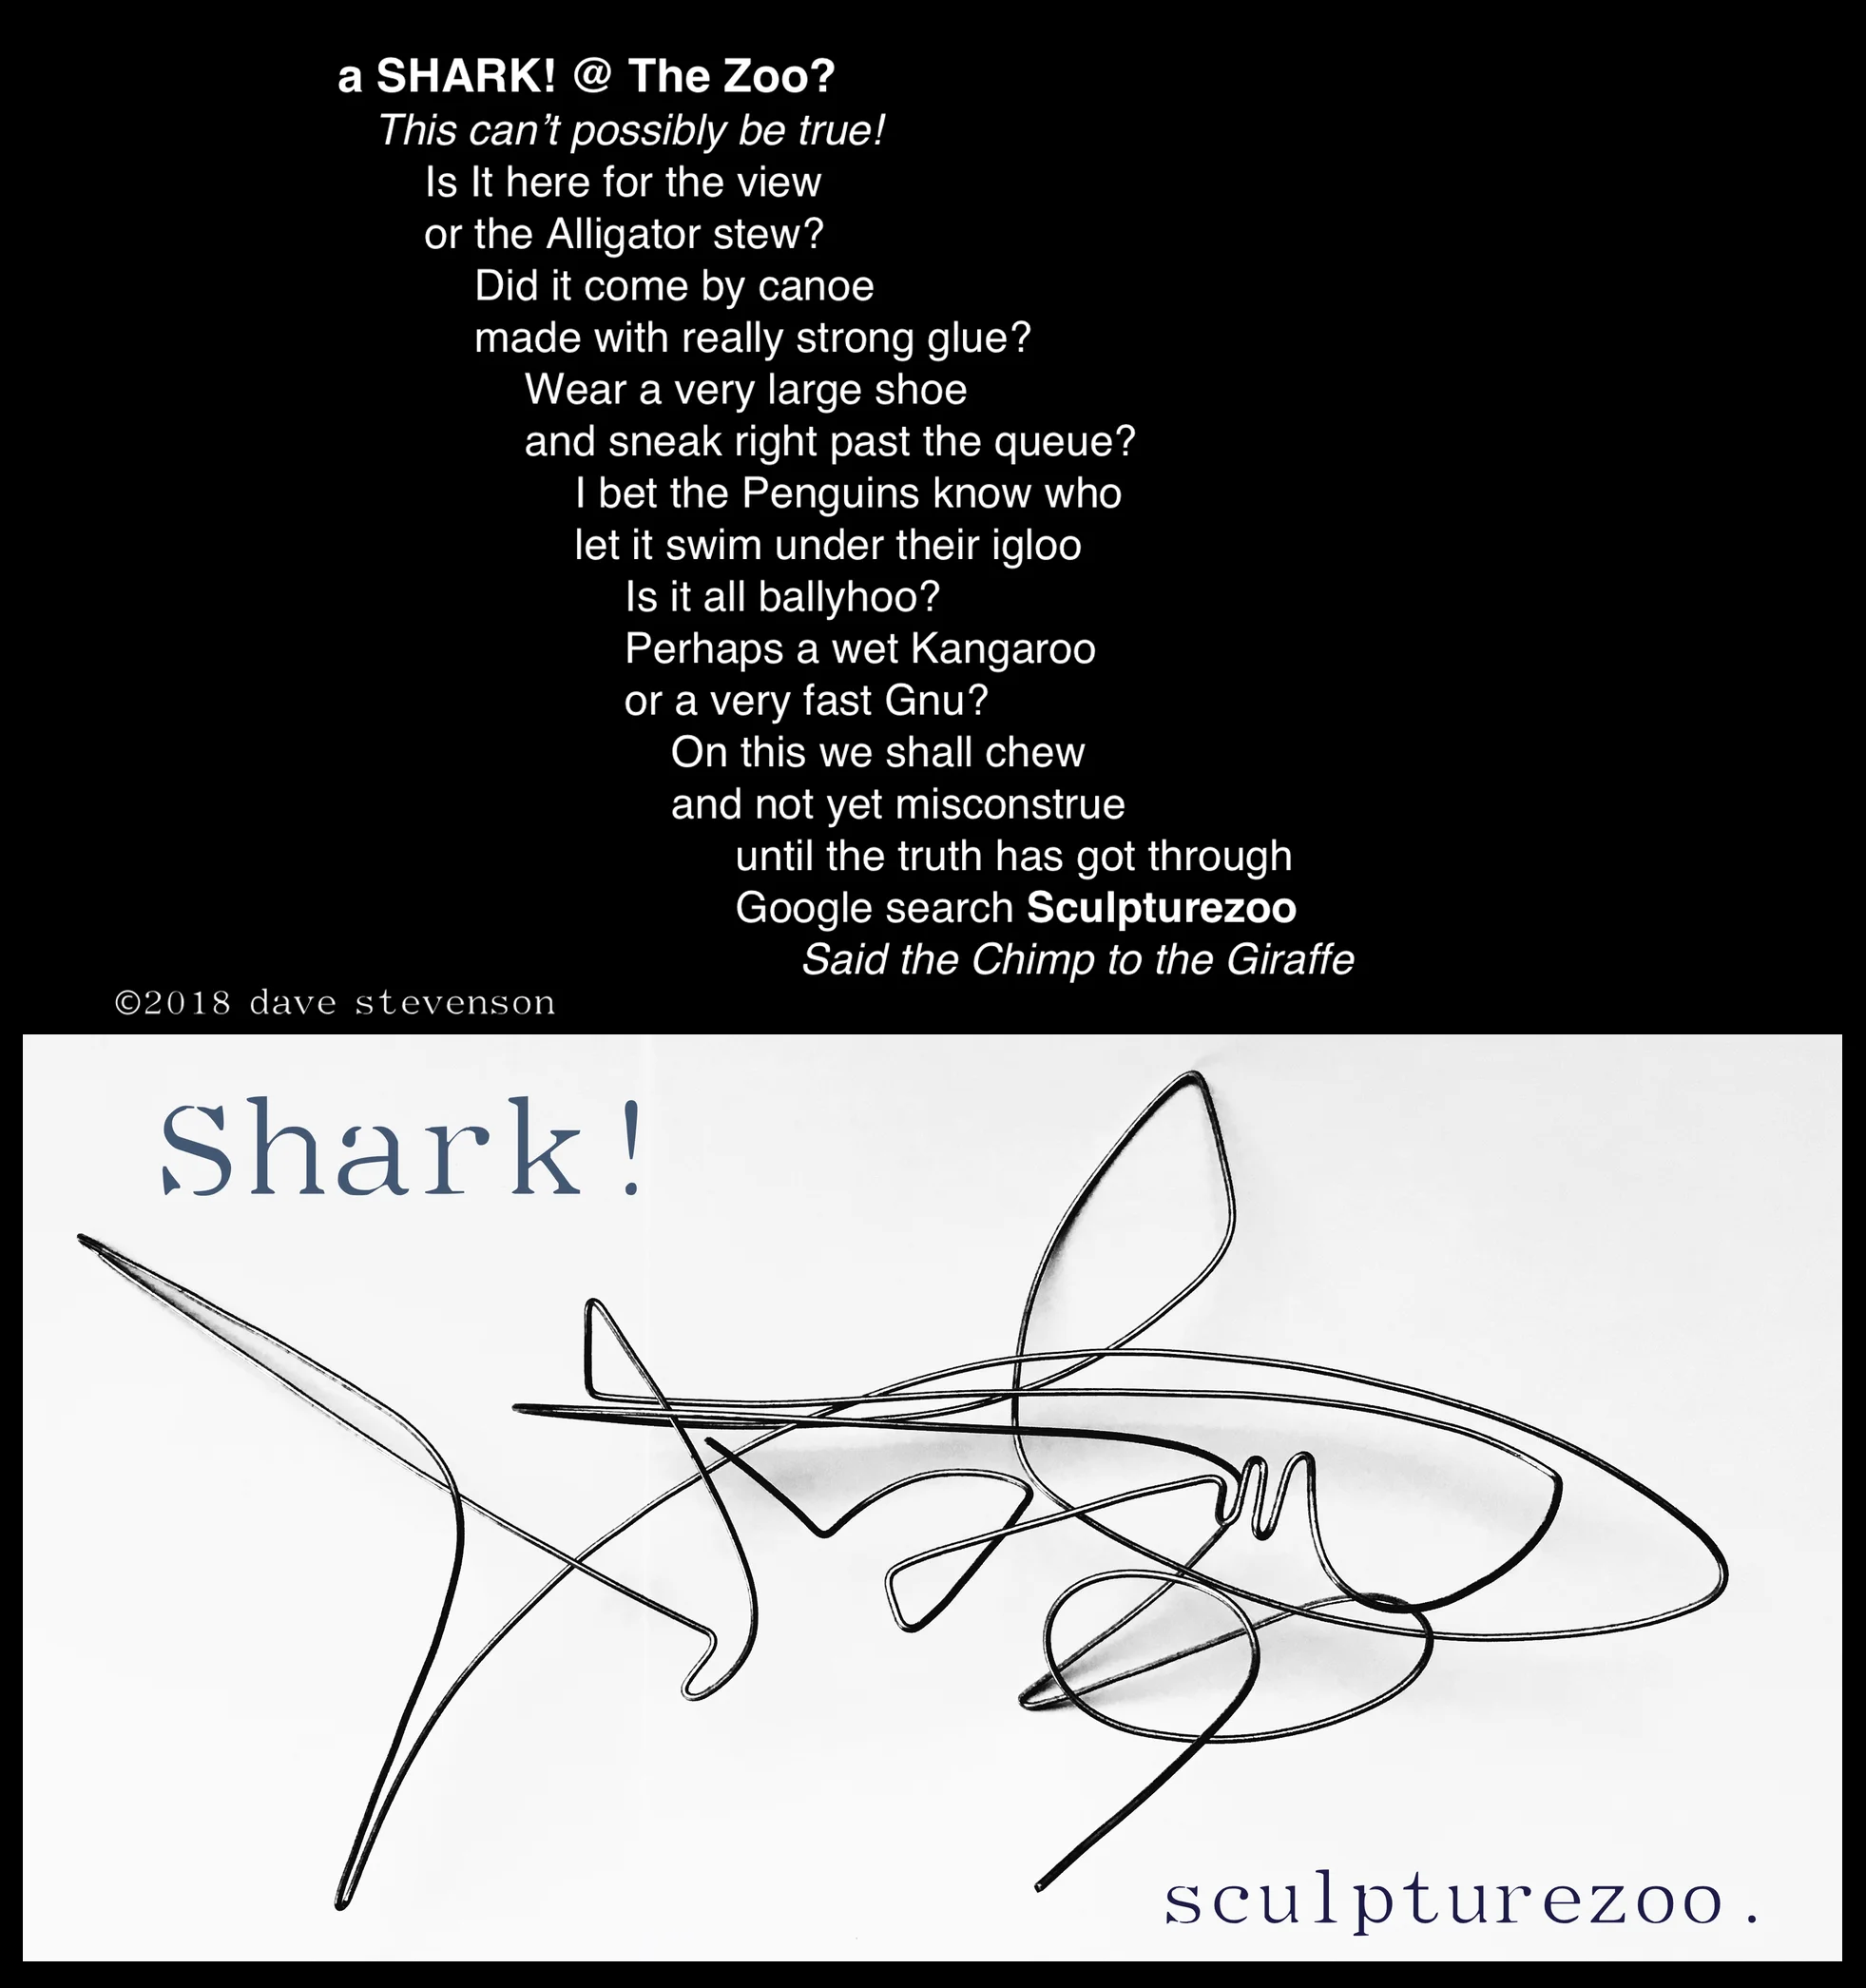 a SHARK! @ The Zoo?
This can’t possibly be true!
Is It here for the view
or the Alligator stew?
Did it come by canoe
made with really strong glue?
Wear a very large shoe
and sneak right past the queue?
I bet the Penguins know who
let it swim under their igloo
Is it all ballyhoo?
Perhaps a wet Kangaroo
or a very fast Gnu?
On this we shall chew
and not yet misconstrue
until the truth has got through
Google search Sculpturezoo
Said the Chimp to the Giraffe
©2018 dave stevenson
Shark!
sculpturezoo.